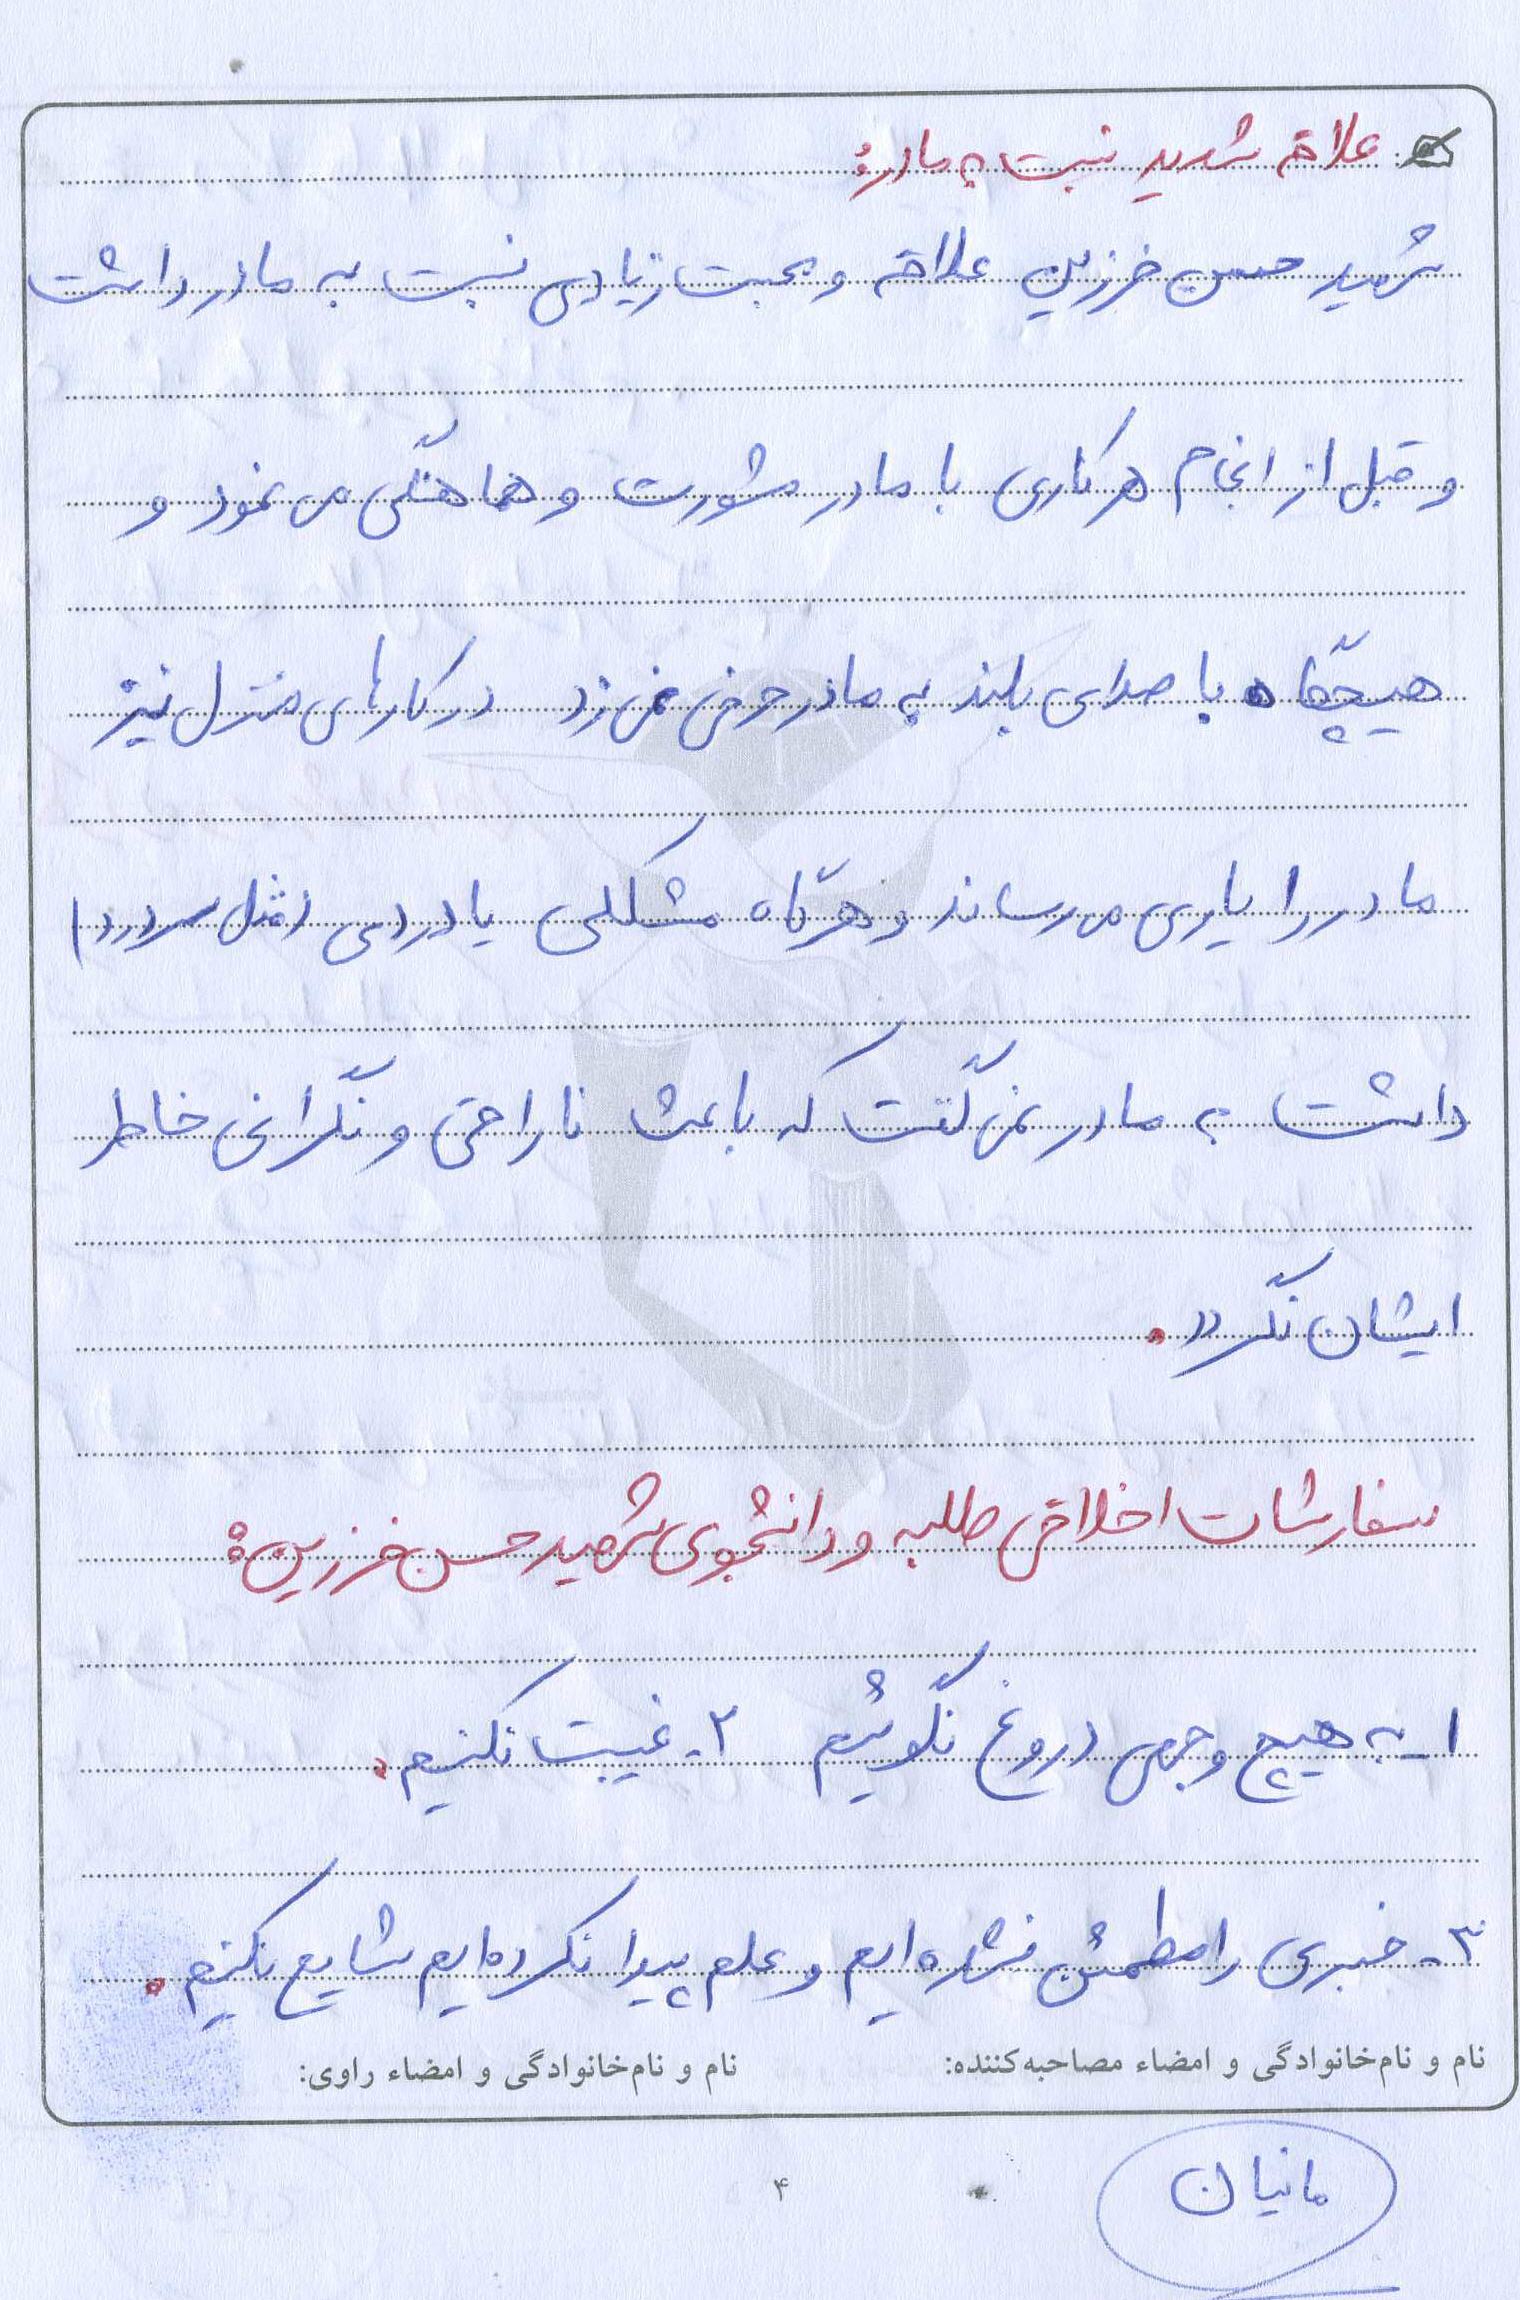 علاقه شدید نسبت به مادر:
شهید حسن خرزین علاقه و محبت زیادی نسبت به مادر داشت
و قبل از انجام هر کاری با مادر مشورت و هماهنگی می نمود و
هیچگاه با صدای بلند به مادر حرفی نمی زد در کارهای منزل نیز
مادر را یاری می رساند و هرگاه مشکلی یا دردی (مثل سردرد)
داشت به مادر نمی گفت که باعث ناراحتی و نگرانی خاطر
ایشان نگردد.
سفارشات اخلاقی طلبه و دانشجوی شهید حسن خرزین:
۱- به هیچ وجهی دروغ نگوئیم ۲- غیبت نکنیم.
۳- خبری را مطمئن نشده ایم و علم پیدا نکرده ایم شایع نکنیم.
نام و نام‌خانوادگی و امضاء مصاحبه‌کننده: نام و نام‌خانوادگی و امضاء راوی:
مانیان
۴